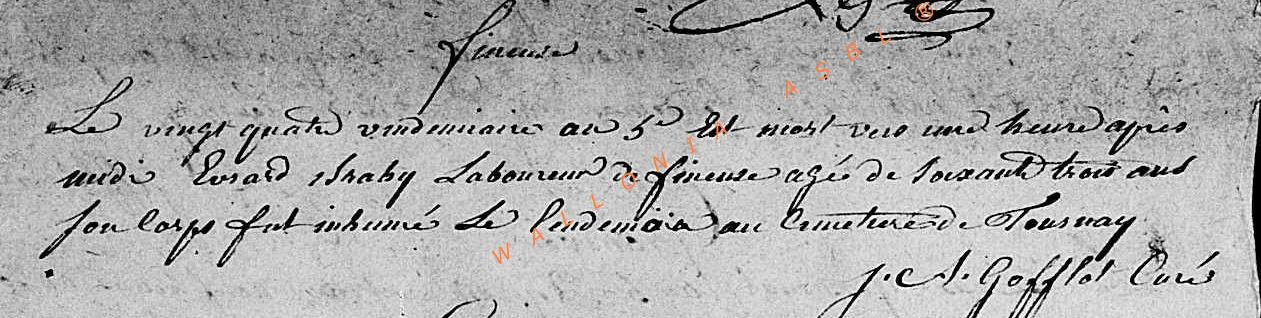 fineuse
Le vingt quatre vendemiaire an 5e Est mort vers une heure après
midi Evrard Laboureur de fineuse agée de soixante trois ans
son corps fut inhumé Le lendemain au Cimetiere de Tournay
j. Gofflot Curé
WALLONIA ASBL